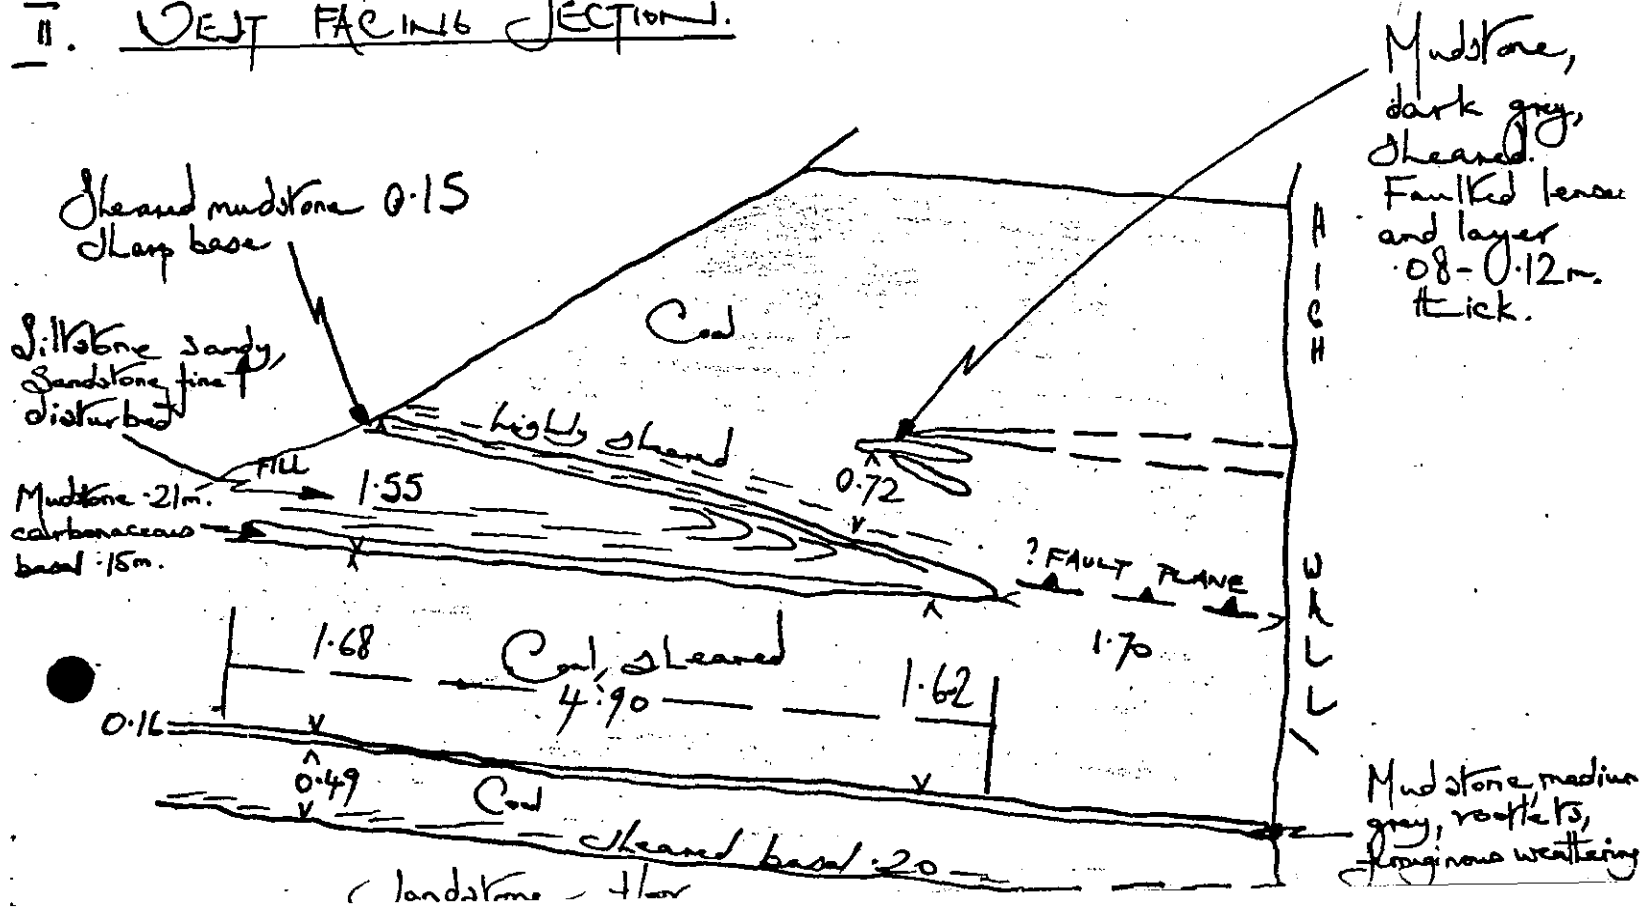 II. WEST FACING SECTION.
Mudstone,
dark grey,
sheared.
Faulted lenses
and layer
.08-0.12m.
thick.
Sheared mudstone 0.15
sharp base
Siltstone sandy,
Sandstone, fine
disturbed
Coal
HIGH
WALL
highly sheared
FILL
1.55
0.72
Mudstone .21m.
carbonaceous
basal .15m.
? FAULT PLANE
1.70
1.68
Coal, sheared
4.90
1.62
0.16
0.49
Coal
Sheared basal .20
Mudstone, medium
grey, rootlets,
ferruginous weathering
Sandstone - floor